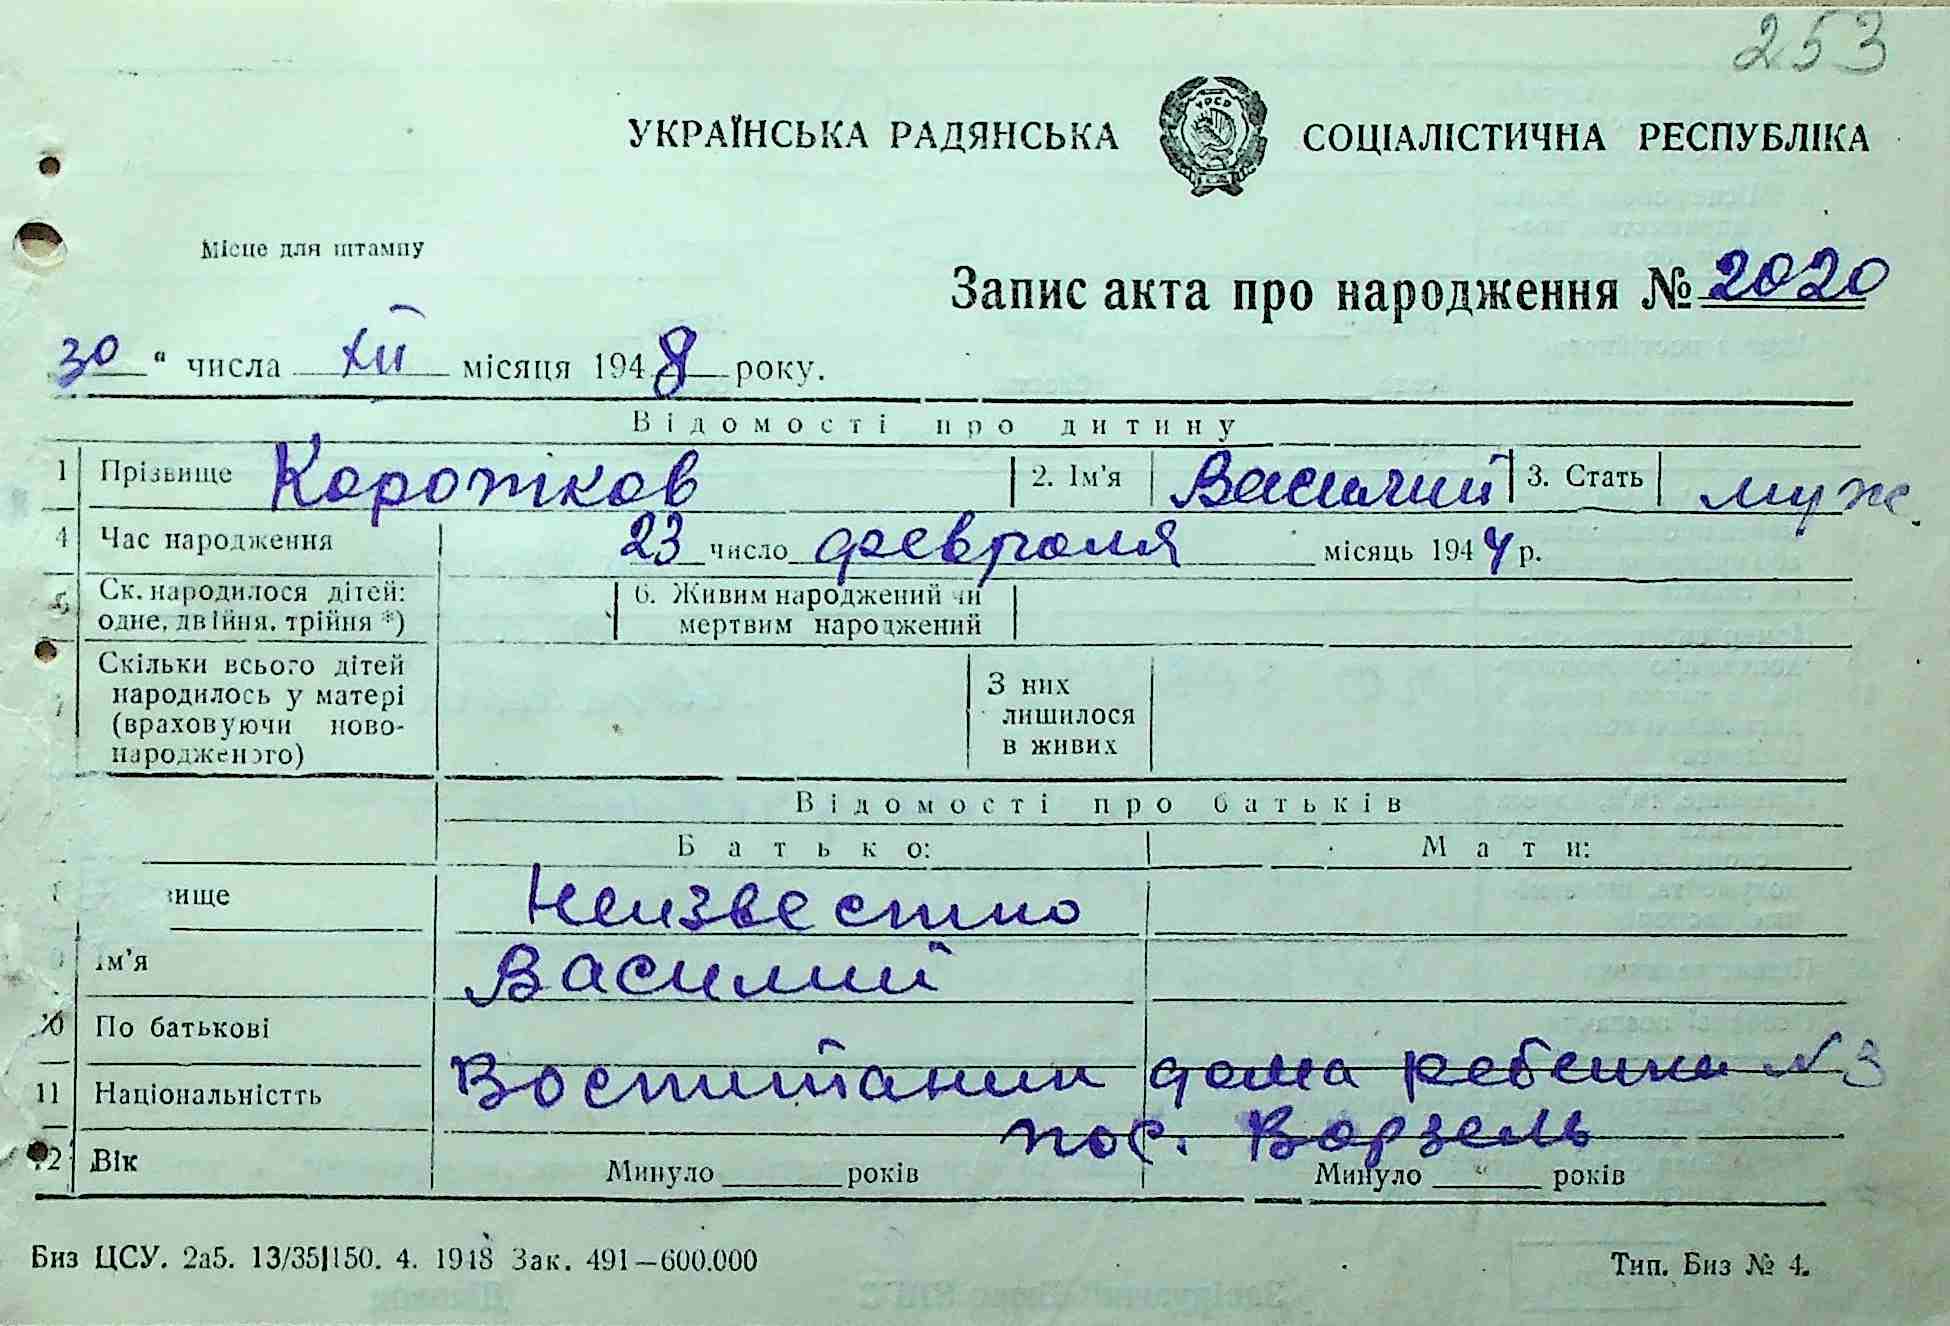 253
УКРАЇНСЬКА РАДЯНСЬКА СОЦІАЛІСТИЧНА РЕСПУБЛІКА
УРСР
Місце для штампу
Запис акта про народження № 2020
30 " числа XII місяця 1948 року.
Відомості про дитину
1 Прізвище Коротков 2. Ім'я Василий 3. Стать муж.
4 Час народження 23 число февраля місяць 1944 р.
5 Ск. народилося дітей: 6. Живим народжений чи
одне, двійня, трійня *) мертвим народжений
7 Скільки всього дітей З них
народилось у матері лишилося
(враховуючи ново- в живих
народженого)
Відомості про батьків
Батько: Мати:
ище Неизвестно
Ім'я Василий
10 По батькові
11 Національністть Воспитанник дома ребенка № 3
пос. Ворзель
12 Вік Минуло ______ років Минуло ______ років
Биз ЦСУ. 2а5. 13/35|150. 4. 1948 Зак. 491—600.000 Тип. Биз № 4.